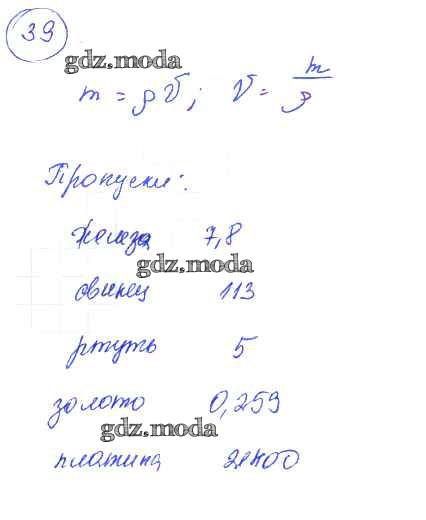 39
gdz.moda
m = ρV; V = m/ρ
Пропуски:
железа 7,8
gdz.moda
свинец 113
ртуть 5
золото 0,259
gdz.moda
платина 21400